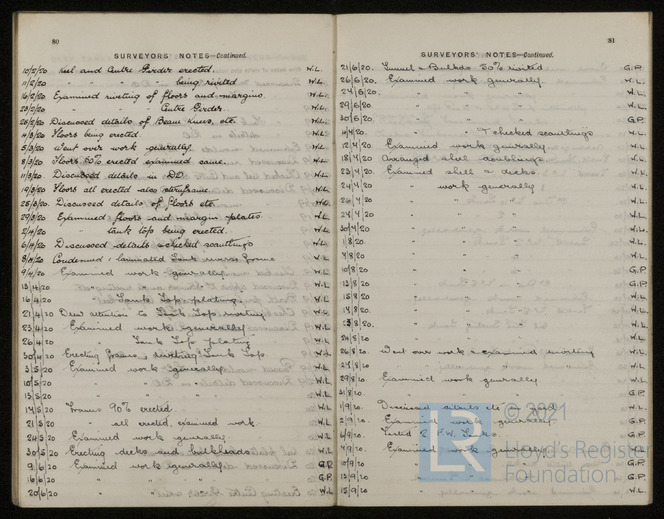 80
SURVEYORS' NOTES—Continued.
10/2/20 Keel and Centre Girder erected. W.L.
11/2/20 " " " " being riveted W.L.
16/2/20 Examined riveting of floors and margins W.L.
23/2/20 " " " Centre Girder. W.L.
26/2/20 Discussed details of Beam knees, etc. W.L.
4/3/20 Floors being erected W.L.
5/3/20 Went over work generally W.L.
8/3/20 Floors 50% erected examined same. W.L.
11/3/20 Discussed details in DO W.L.
19/3/20 Floors all erected also sternframe W.L.
25/3/20 Discussed details of floors etc. W.L.
29/3/20 Examined floors and margin plates W.L.
2/4/20 " tank top being erected. W.L.
6/4/20 Discussed details & checked scantlings W.L.
8/4/20 Condemned 1 laminated Tank reverse frame W.L.
9/4/20 Examined work generally W.L.
13/4/20 " " " W.L.
16/4/20 " Tank Top plating W.L.
21/4/20 Drew attention to Tank Top riveting W.L.
23/4/20 Examined work generally W.L.
26/4/20 " Tank Top plating W.L.
30/4/20 Erecting frames, riveting Tank Top W.L.
3/5/20 Examined work generally W.L.
10/5/20 " " " W.L.
13/5/20 " " " W.L.
14/5/20 Frames 90% erected. W.L.
21/5/20 " all erected, examined work. W.L.
24/5/20 Examined work generally W.L.
30/5/20 Erecting decks and bulkheads W.L.
9/6/20 Examined work generally G.P.
16/6/20 " " " G.P.
20/6/20 " " " W.L.
81
SURVEYORS' NOTES—Continued.
21/6/20. Tunnel & Bulkds 50% riveted G.P.
26/6/20. Examined work generally W.L.
" " " W.L.
29/6/20 " " " W.L.
30/6/20 " " " G.P.
" " " & checked scantlings W.L.
Examined work generally W.L.
Arranged shell doublings W.L.
Examined shell & decks W.L.
" work generally W.L.
" " " W.L.
" " " W.L.
" " " W.L.
" " " W.L.
" " " G.P.
10/8/20 " " " G.P.
13/8/20 " " " G.P.
15/8/20 " " " W.L.
" " " W.L.
" " " W.L.
" " " W.L.
26/8/20 Went over work & examined riveting W.L.
" " " W.L.
29/8/20 Examined work generally W.L.
" " " G.P.
1/9/20 Discussed details etc W.L.
Examined work generally G.P.
Tested F.W. Tanks G.P.
Examined work generally W.L.
" " " G.P.
13/9/20 " " " G.P.
15/9/20 " " " W.L.
LR
© 2021
Lloyd's Register
Foundation